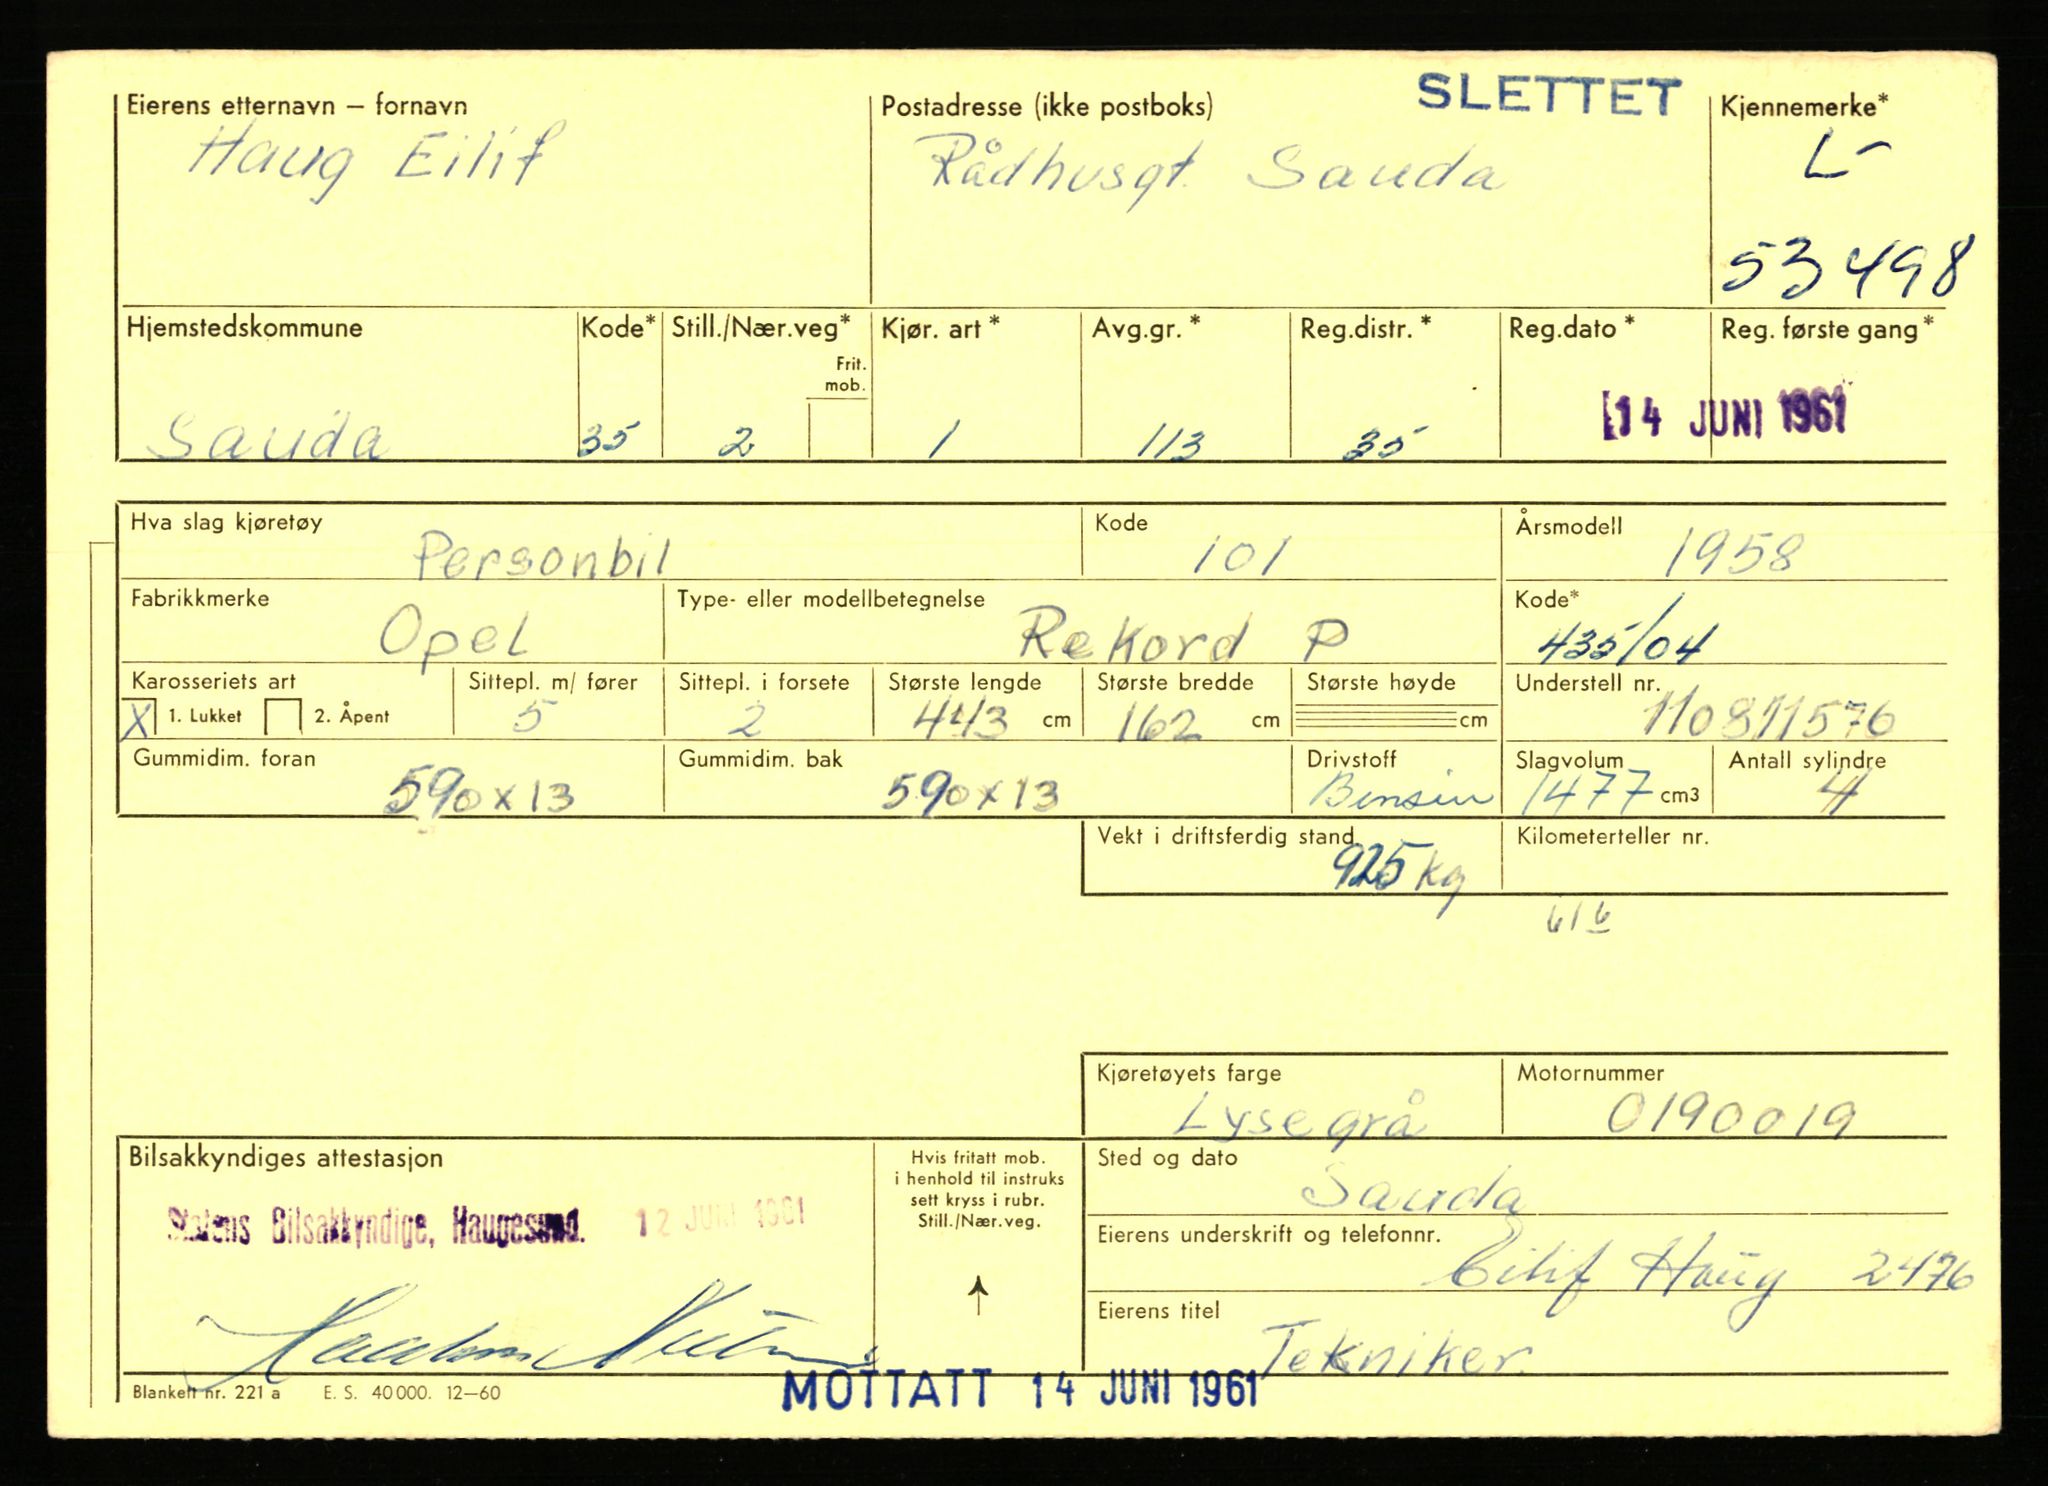 SLETTET
Eierens etternavn – fornavn
Haug Eilif
Postadresse (ikke postboks)
Rådhusgt. Sauda
Kjennemerke*
L-
53498
Hjemstedskommune
Sauda
Kode*
35
Still./Nær.veg*
2
Frit.
mob.
Kjør. art *
1
Avg.gr. *
113
Reg.distr. *
35
Reg.dato *
Reg. første gang *
14 JUNI 1961
Hva slag kjøretøy
Personbil
Kode
101
Årsmodell
1958
Fabrikkmerke
Opel
Type- eller modellbetegnelse
Rekord P
Kode*
435/04
Karosseriets art
X 1. Lukket 2. Åpent
Sittepl. m/ fører
5
Sittepl. i forsete
2
Største lengde
443 cm
Største bredde
162 cm
Største høyde
cm
Understell nr.
110811576
Gummidim. foran
590 x 13
Gummidim. bak
590 x 13
Drivstoff
Bensin
Slagvolum
1477 cm3
Antall sylindre
4
Vekt i driftsferdig stand
925 kg
Kilometerteller nr.
616
Kjøretøyets farge
Lysegrå
Motornummer
0190019
Bilsakkyndiges attestasjon
Statens Bilsakkyndige, Haugesund. 12 JUNI 1961
Hvis fritatt mob.
i henhold til instruks
sett kryss i rubr.
Still./Nær.veg.
Sted og dato
Sauda
Eierens underskrift og telefonnr.
Eilif Haug 2476
Eierens titel
Tekniker.
Blankett nr. 221 a E. S. 40 000. 12—60
MOTTATT 14 JUNI 1961